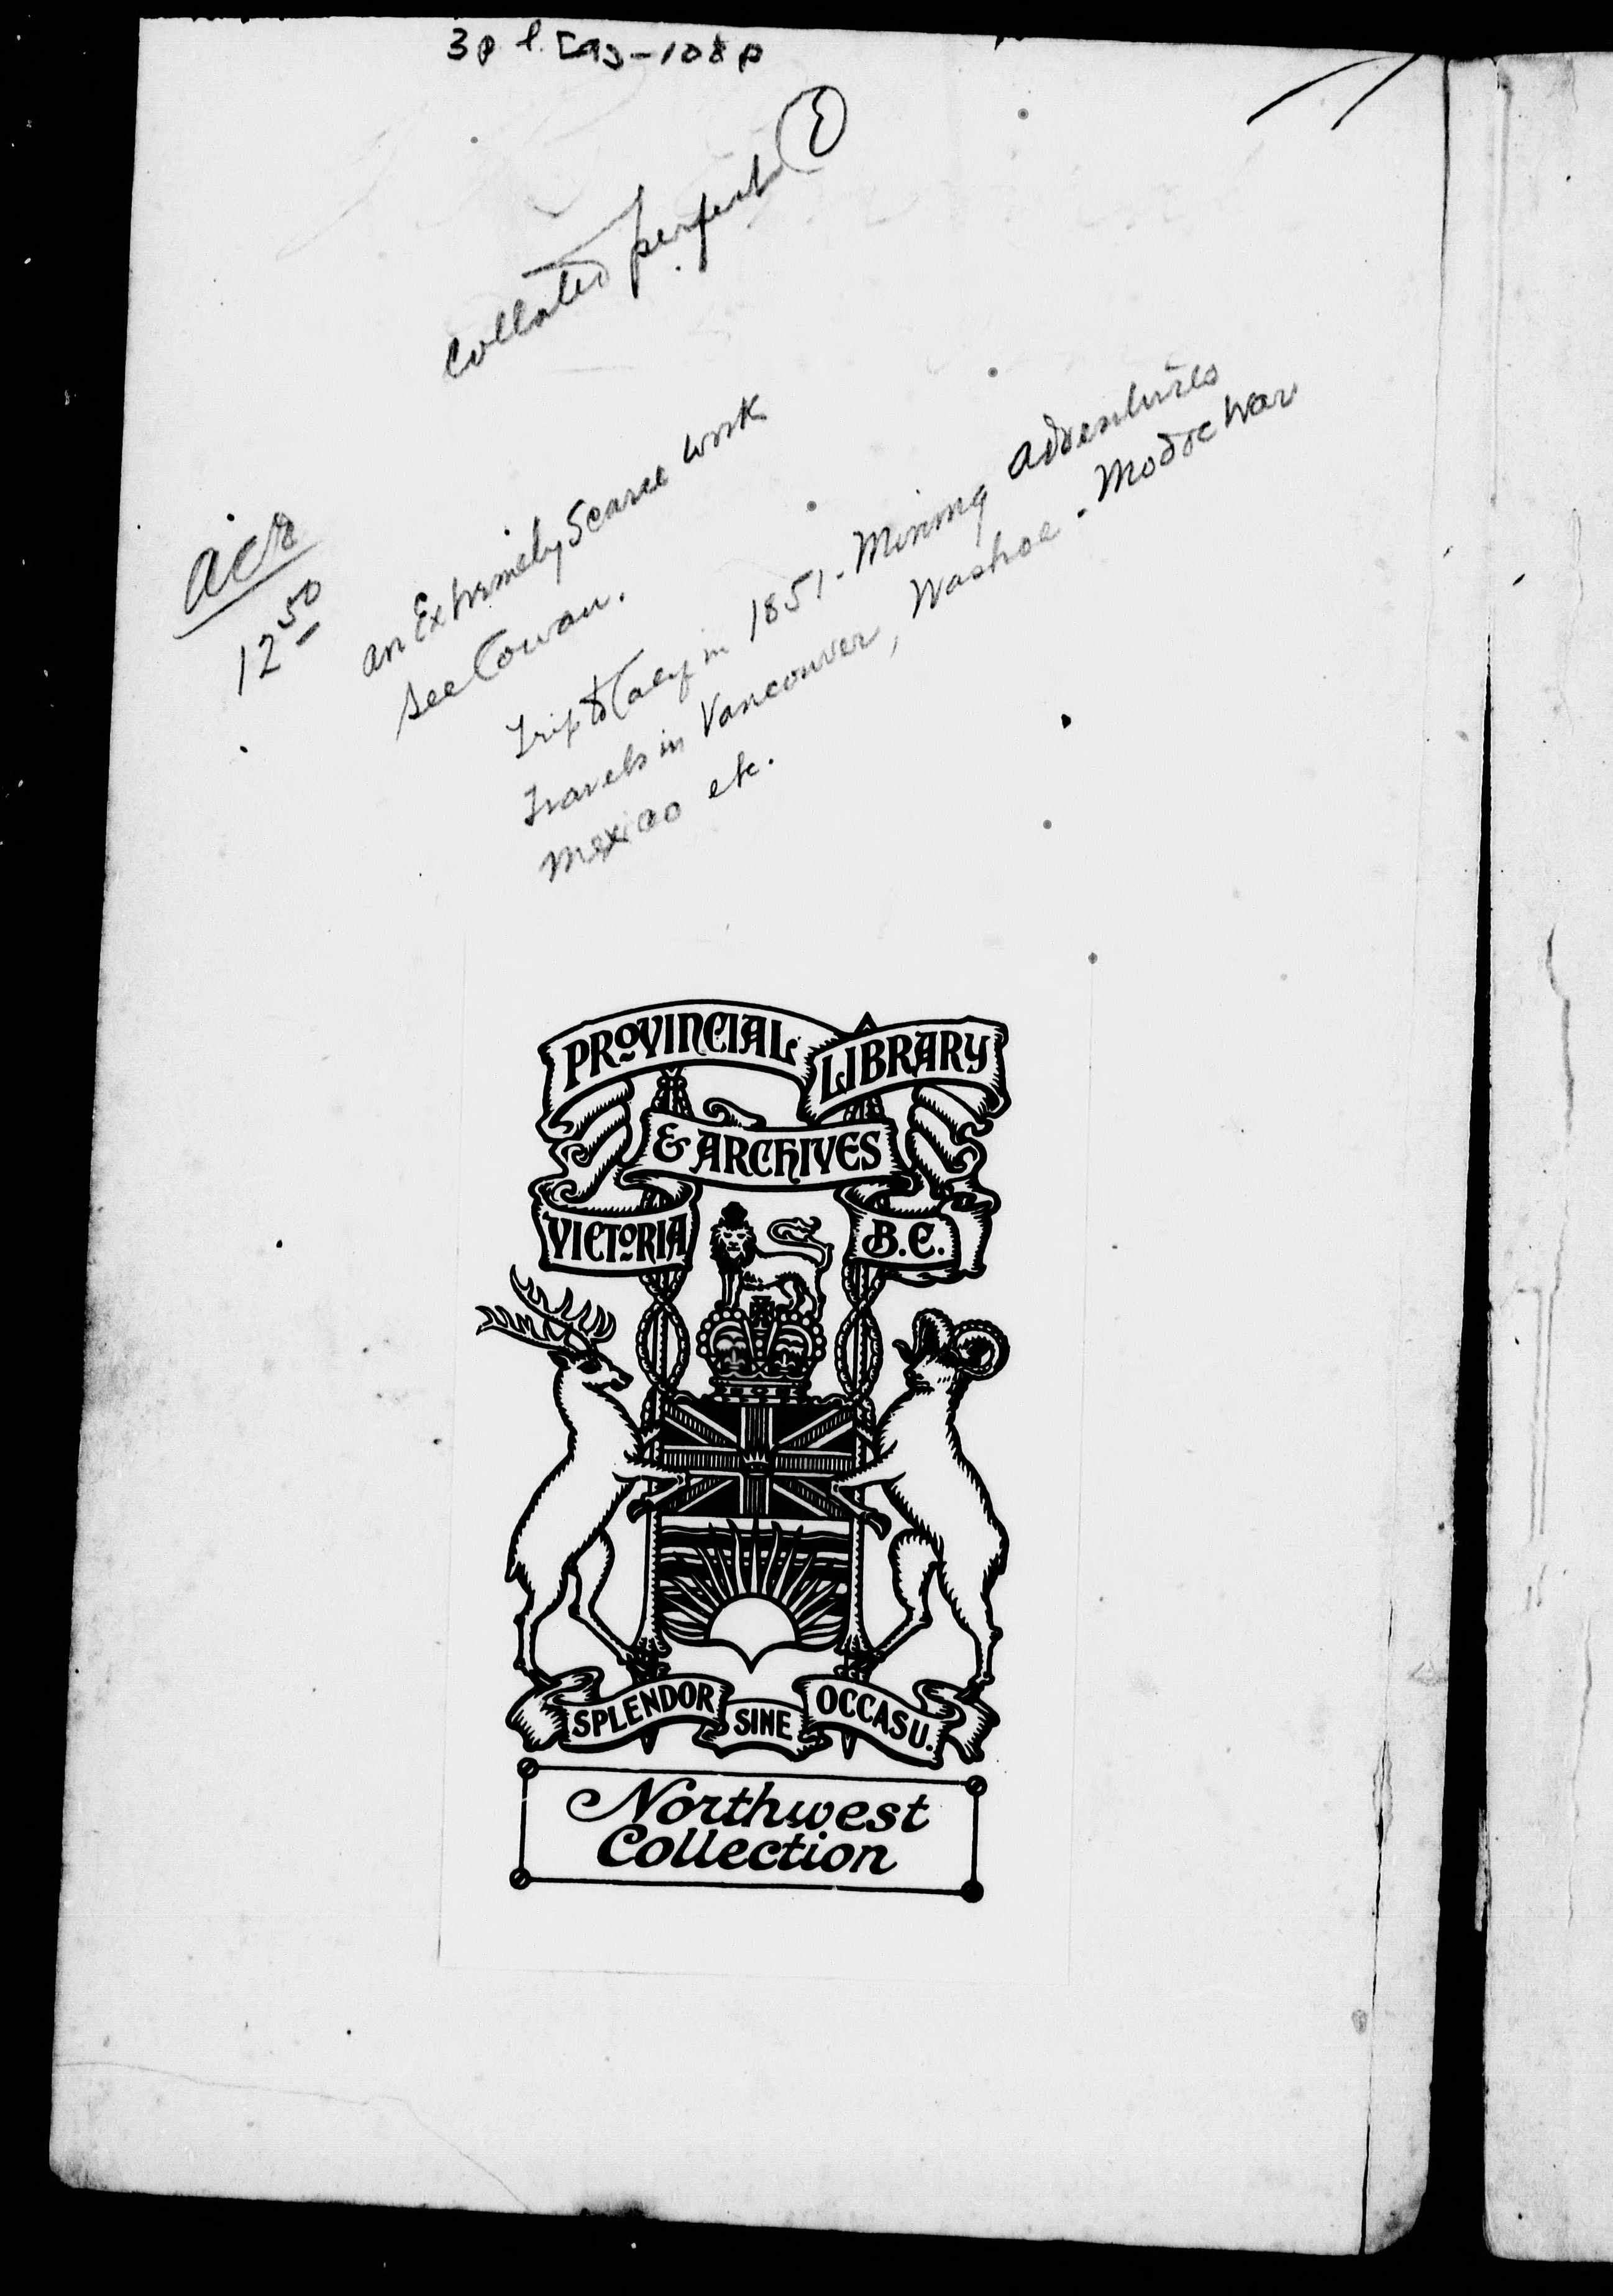 3 p l. [9]-108 p
Collated perfect E
acr
12 50
an Extremely Scarce work
see Cowan.
Trip to Calif in 1851 - Mining adventures
Travels in Vancouver, Washoe - Modoc War
Mexico etc.
PROVINCIAL LIBRARY
& ARCHIVES
VICTORIA B.C.
SPLENDOR SINE OCCASU.
Northwest
Collection